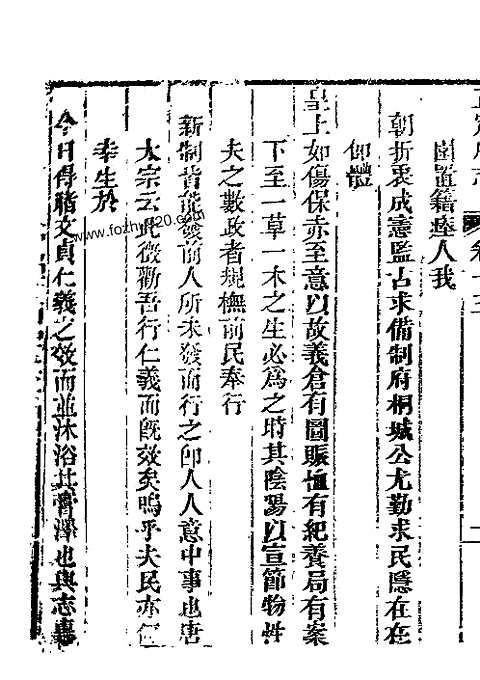 圖置籍瘞人我
朝折衷成憲監古求備制府桐城公尤勤求民隱在在
仰體
皇上如傷保赤至意以故義倉有圖賑恤有紀養局有案
下至一草一木之生必為之時其陰陽以宣節物性
夫之數政者規橅前民奉行
新制皆能發前人所未發而行之卽人人意中事也唐
太宗云此徵勸吾行仁義而旣效矣嗚乎夫民亦何
幸生於
今日得睹文貞仁義之效而並沐浴其膏澤也與志
www.fozhu920.com